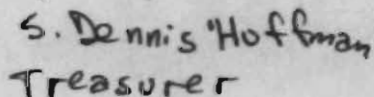 S. Dennis Hoffman
Treasurer